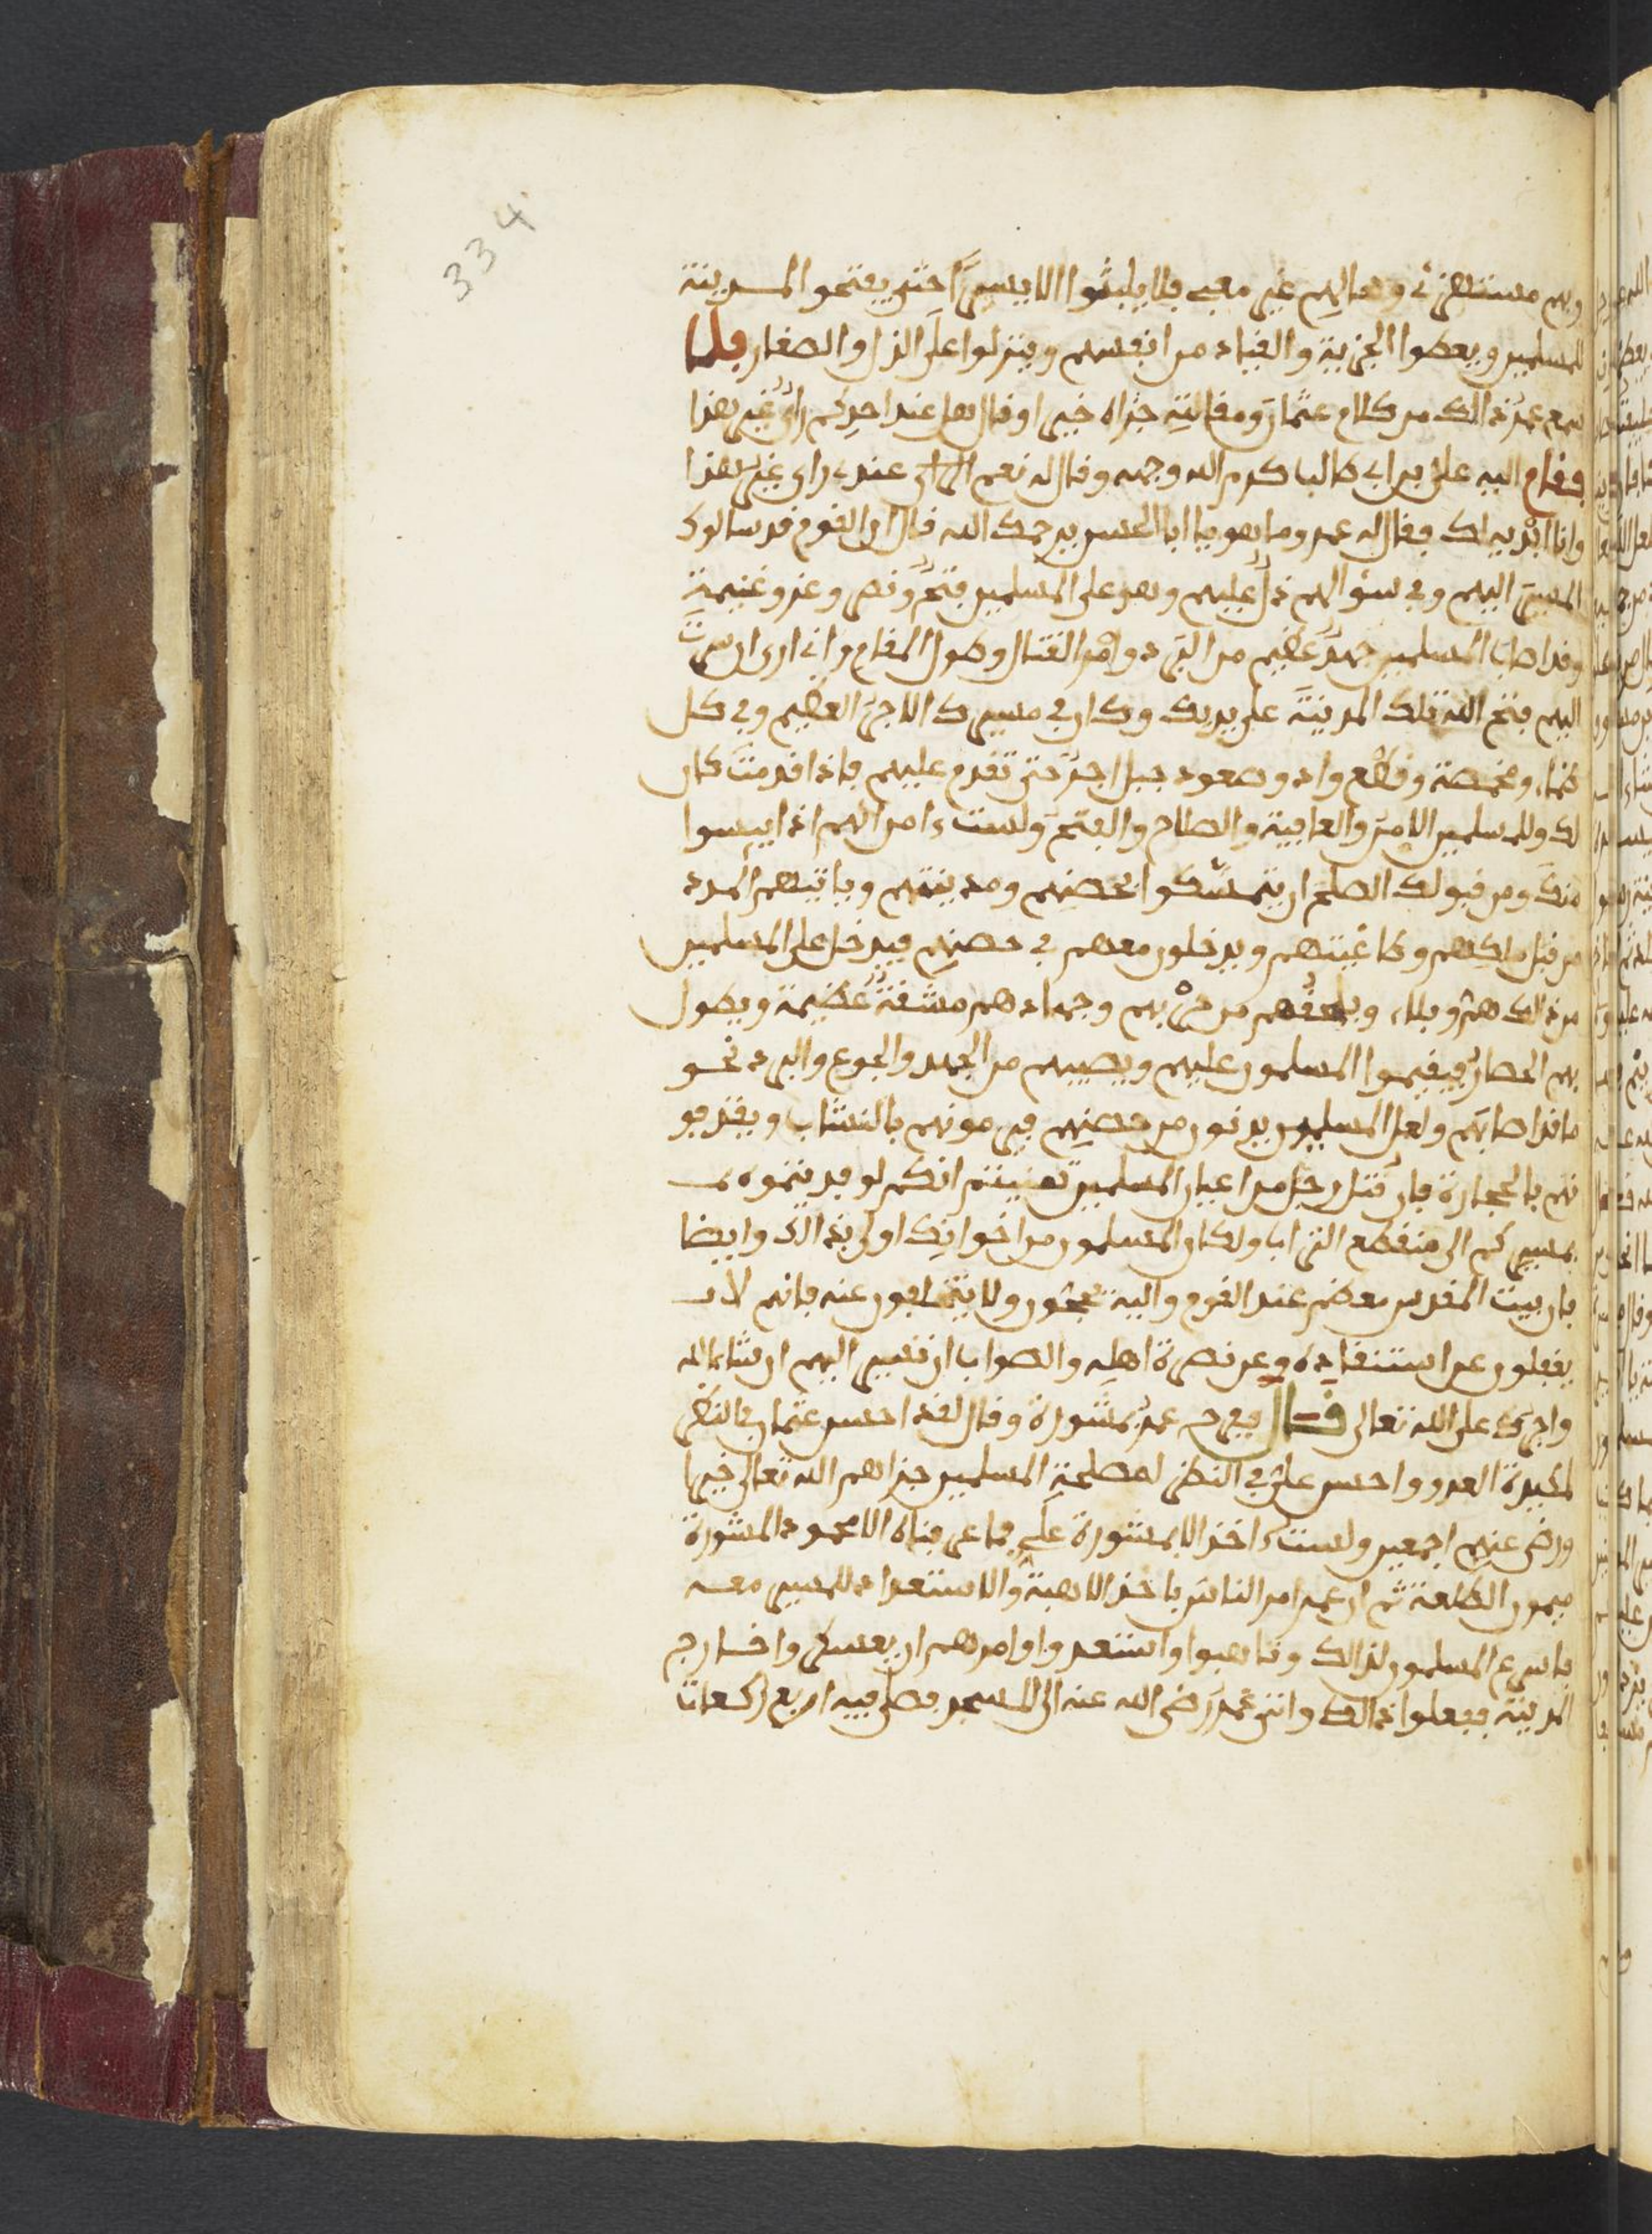 334
وبهم مستهزئ ولقتالهم غير معبى فلا يلبثوا الا يسيرا حتى يفتحوا المدينة
للمسلمين ويعطوا الجزية والقياد من انفسهم وينزلوا على الذل والصغار فلما
سمع عمر ذالك من كلام عثمان ومقالته جزاه خيرا وقال هل عند احدكم راي غير هذا
فقام اليه علي بن ابي طالب كرم الله وجهه وقال له نعم عندي راي غير هذا
وانا ابديه لك فقال له عمر وما هو يا ابا الحسن يرحمك الله قال ان القوم قد سالوك
المسير اليهم وفي سؤالهم ذل عليهم وهو على المسلمين فتح ونصر وعز وغنيمة
وقد اصاب المسلمين جهد عظيم من البرد وامر القتال وطول المقام واني ارى ان سرت
اليهم فتح الله تلك المدينة على يديك وكان في مسيرك الاجر العظيم وفي كل
ظماء ومخمصة وقطع واد وصعود جبل اجر حتى تقدم عليهم فاذا قدمت كان
لك وللمسلمين الامن والعافية والصلاح والفتح ولست ءامن انهم اذا ييسوا
منك ومن قبولك الصلح ان يتمسكوا بحصنهم ومدينتهم وياتيهم المدد
من قبل ملكهم وطاغيتهم ويدخلون معهم في حصنهم فيدخل على المسلمين
من ذالك هم وبلاء ويلحقهم من حربهم وجهادهم مشقة عظيمة ويطول
بهم الحصار فيقيموا المسلمون عليهم ويصيبهم من الجهد والجوع والبرد نحو
ما قد اصابهم ولعل المسلمين يدنون من حصنهم فيرمونهم بالنشاب ويقذفو
نهم بالحجارة فان قتل رجل من اعيان المسلمين تمنيتم انكم لو فديتموه
بمسيركم الى منقطع التراب ولكان المسلمون من اخوانك اولى بذالك وايضا
فان بيت المقدس معظم عند القوم واليه يحجون ولا يتخلفون عنه فانهم لا
يغفلون عن استنقاذه وعن نصرة اهله والصواب ان تسير اليهم ان شاء الله
واجرك على الله تعالى قال ففرح عمر بمشورة وقال لقد احسن عثمان في النظر
لمكيدة العدو واحسن علي في النظر لمصلحة المسلمين جزاهم الله تعالى خيرا
ورضي عنهم اجمعين ولست ءاخذ الا بمشورة علي فما عرفناه الا محمود المشورة
ميمون الطلعة ثم ان عمر امر الناس باخذ الاهبة والاستعداد للمسير معه
فاسرع المسلمون لذالك وتاهبوا واستعدوا وامرهم ان يعسكروا خارج
المدينة ففعلوا ذالك واتى عمر رضي الله عنه الى المسجد فصلى فيه اربع ركعات